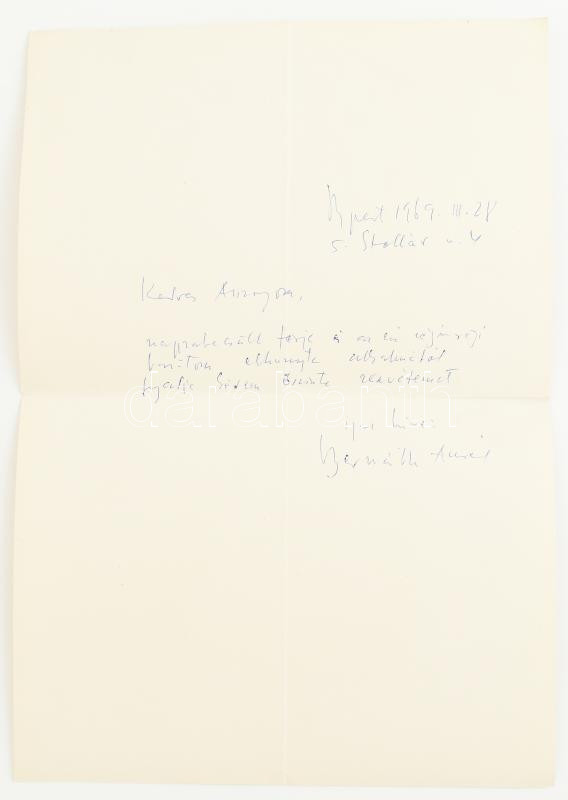 Bpest 1969. III. 28
5. Stollár u. 4
Kedves Asszonyom,
nagyrabecsült férje és az én régi
barátom elhunyta alkalmából
fogadja őszinte részvétemet
igaz híve:
Bernáth Aurél
darabanth